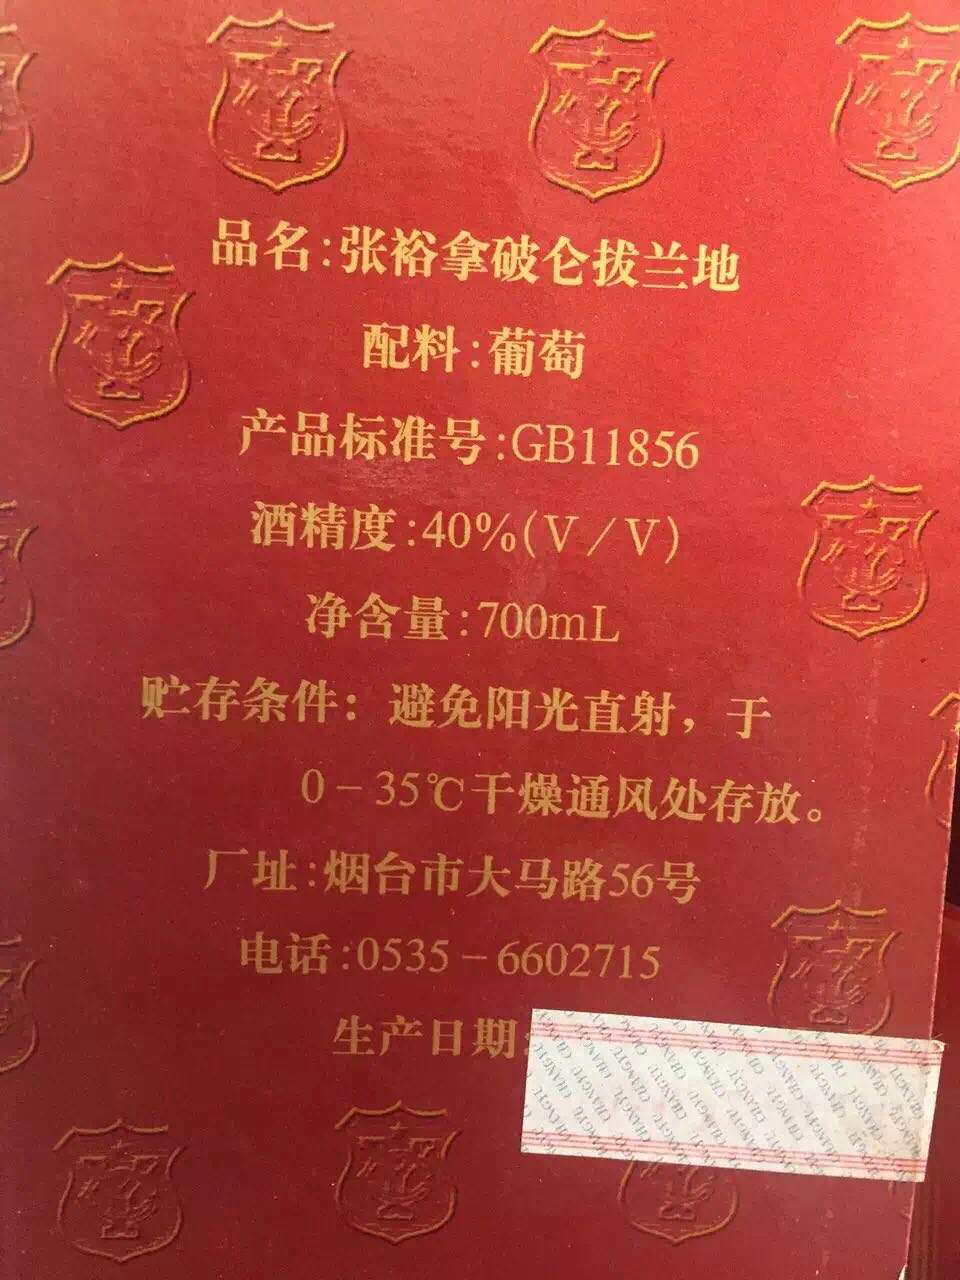 品名:张裕拿破仑拔兰地
配料:葡萄
产品标准号:GB11856
酒精度:40%(V/V)
净含量:700mL
贮存条件：避免阳光直射，于
0-35℃干燥通风处存放。
厂址:烟台市大马路56号
电话:0535-6602715
生产日期:
CHANGYU CHANGYU CHANGYU CHANGYU